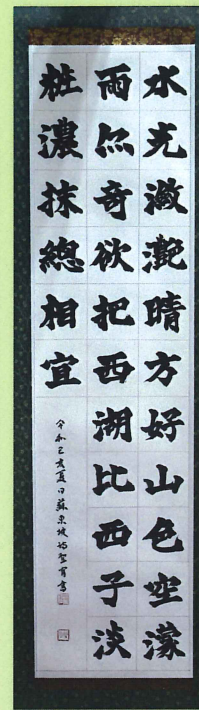 水光瀲灔晴方好山色空濛
雨亦奇欲把西湖比西子淡
粧濃抹總相宜
令和己亥夏日蘇東坡詩